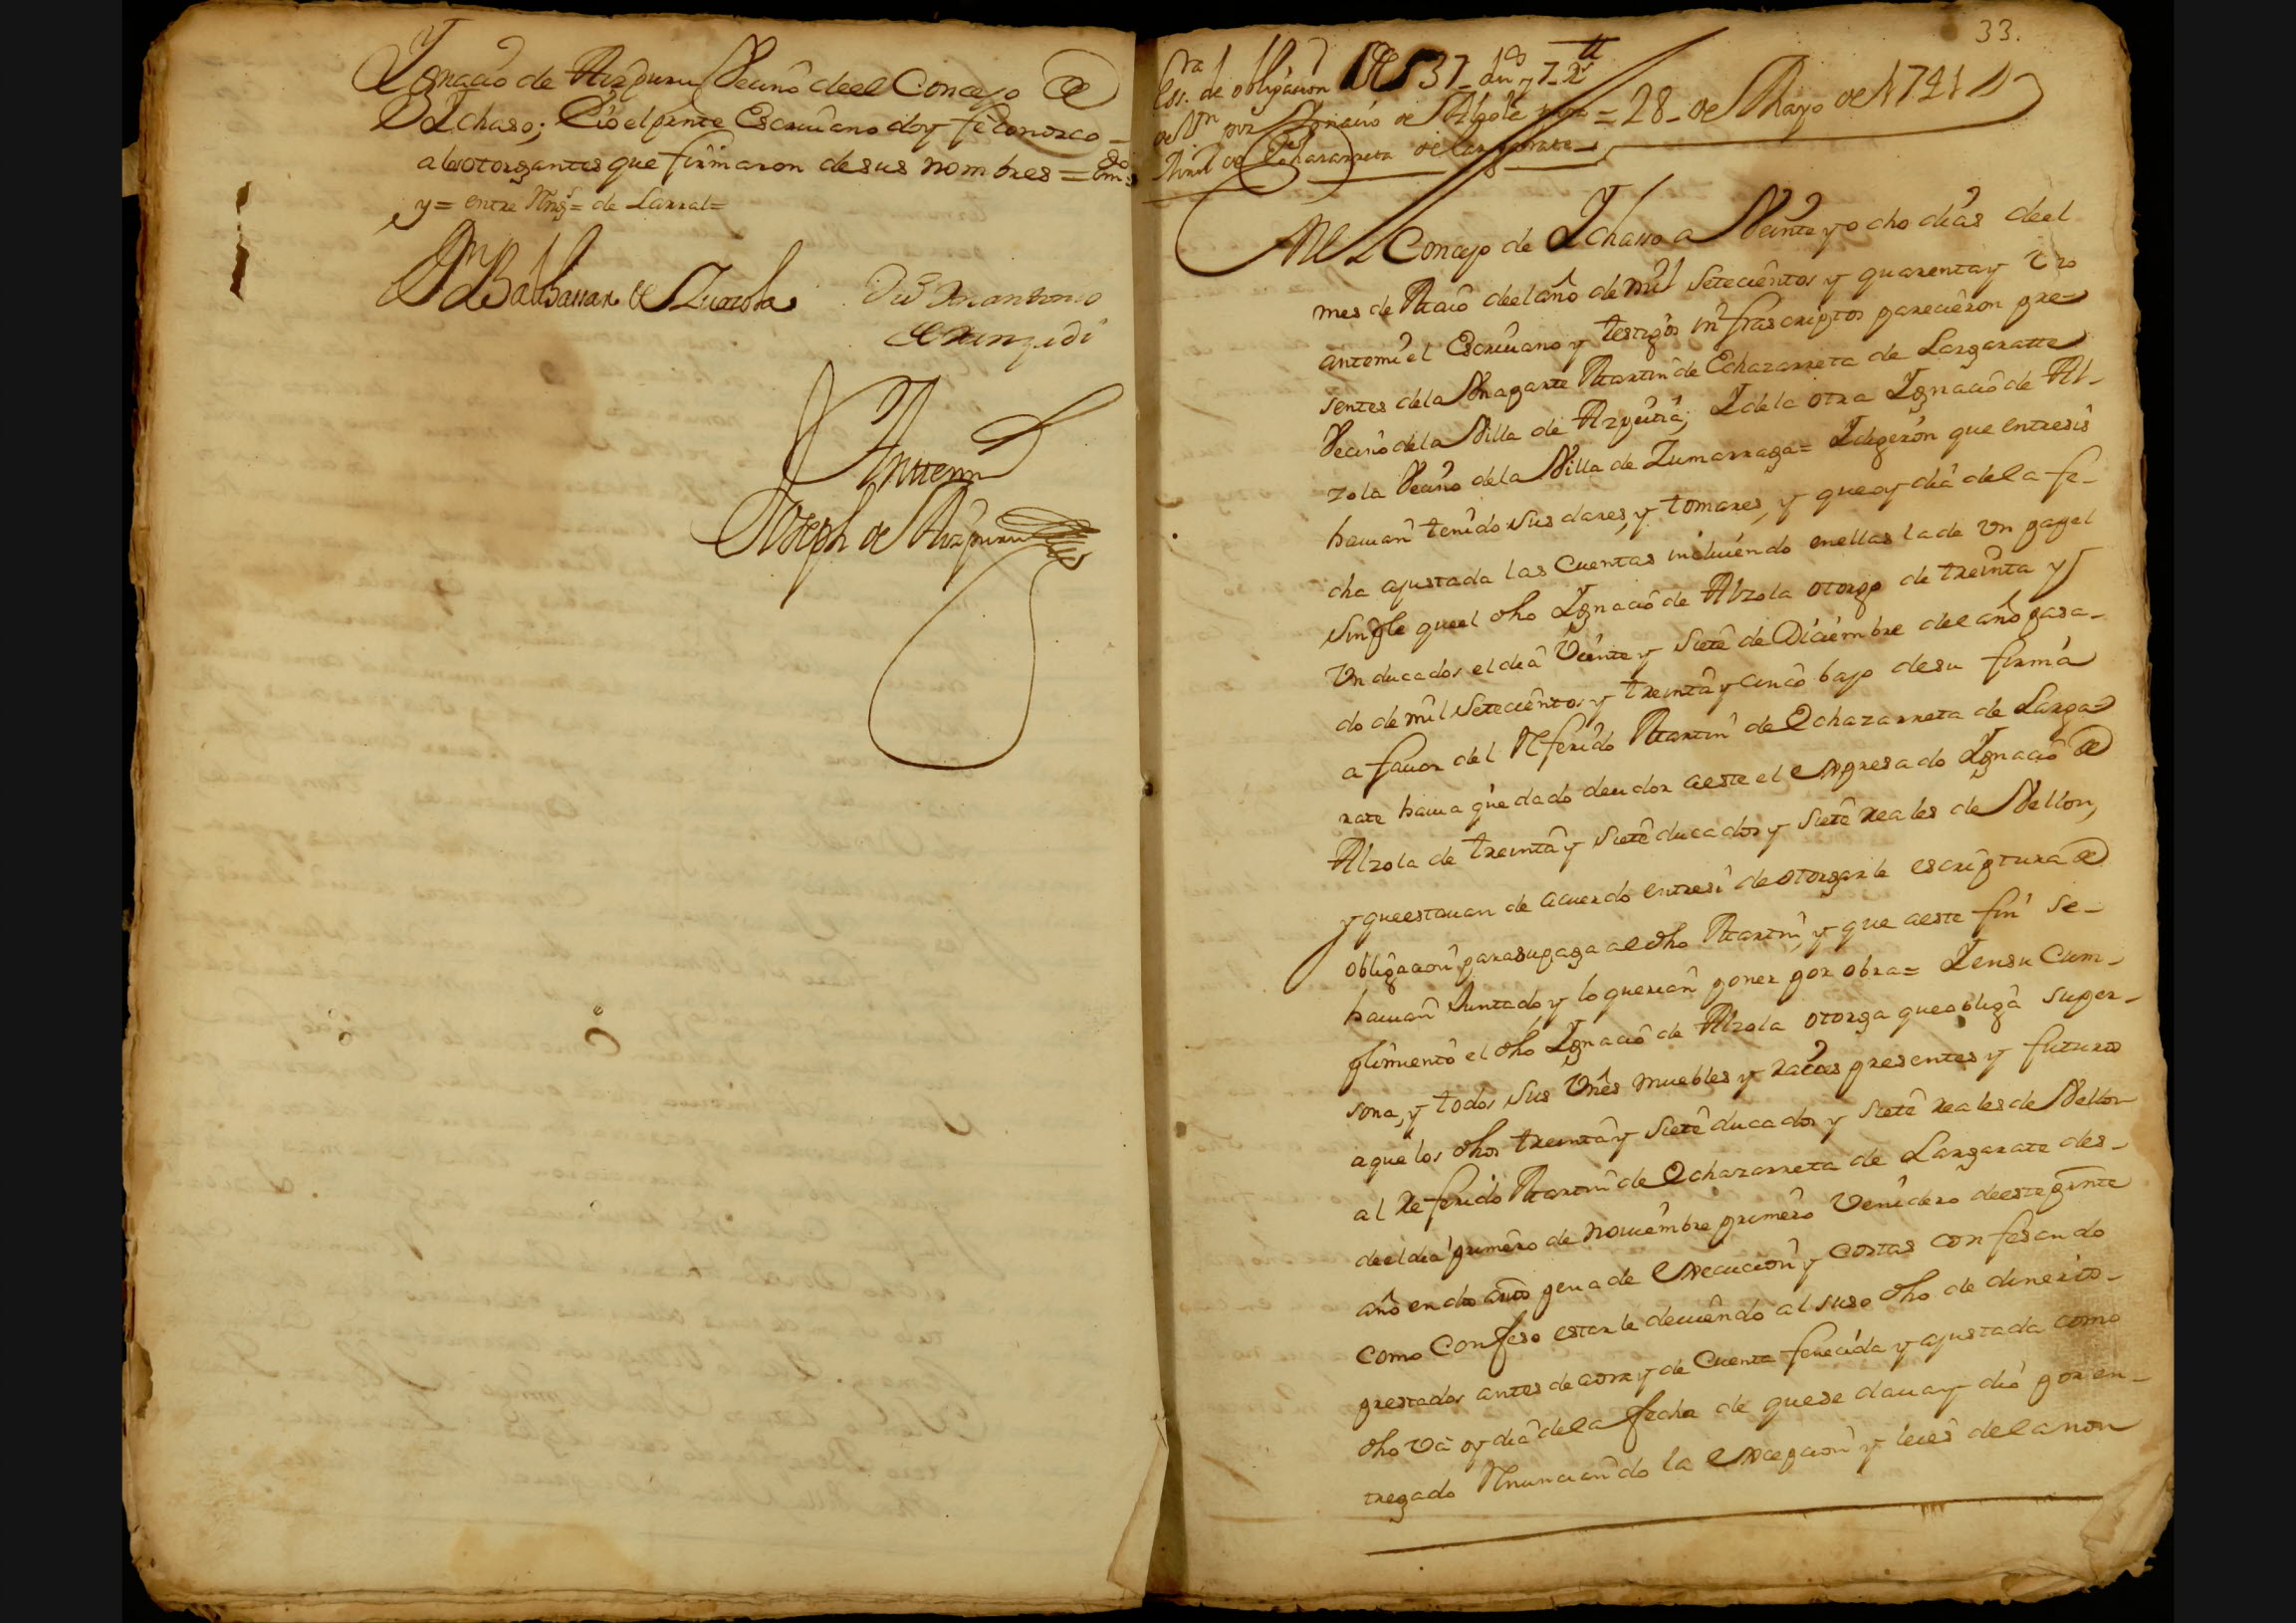 Ygnacio de Aizpuru Vecino deel Concejo de
Ychaso; E io el prnte Escriuano doy fe conozco
a los otorgantes que firmaron de sus nombres = Em.do
y = entre Rng.s = de Larral =
Dn Balthassar de Zuazola
Juan antonio
Antemi
Joseph de Aizpuru
33.
Essra. de obligacion de 37 dus y 7 Rs
de Vn por Ignacio de Alzola = 28 de Mayo de 1741
Mrn de Echazarreta de Largarate
En el Concejo de Ychasso a Veinte y ocho dias deel
mes de Maio deel año de mil Setecientos y quarenta y Vno
antemi el Escriuano y testigos infrascriptos parecieron pre-
sentes de la Vna parte Martin de Echazarreta de Largaratte
Vecino de la Villa de Azpeitia; Y de la otra Ygnacio de Al-
zola Vecino de la Villa de Zumarraga = Y digeron que entre sis
hauian tenido sus dares, y tomares, y que oy dia de la fe-
cha ajustada las Cuentas incluiendo en ellas la de Vn papel
simple que el dho Ygnacio de Alzola otorgo de treinta y
Vn ducados el dia Veinte y siete de Diciembre del año pasa-
do de mil setecientos y treinta y cinco bajo de su firma
a fauor del Referido Martin de Echazarreta de Larga-
rate hauia quedado deudor a este el expresado Ygnacio de
Alzola de treinta y siete ducados y siete reales de Vellon,
y que estauan de acuerdo entre si de otorgarle escriptura de
obligacion para su paga al dho Martin, y que a este fin se-
hauian Juntado, y lo querian poner por obra = Y en su Cum-
plimiento el dho Ygnacio de Alzola otorga que obliga su per-
sona, y todos sus Vnes muebles y raices presentes y futuros
a que los dhos treinta y siete ducados y siete reales de Vellon
al Referido Martin de Echazarreta de Largarate des-
deel dia primero de nouiembre primero Venidero de este prnte
año en dos años pena de execucion y costas confesando
como Confeso estarle deuiendo al suso dho de dineros
prestados antes de aora y de Cuenta fenecida y ajustada como
dho va oy dia de la fecha de que se daua y dio por en-
tregado Renunciando la excepcion y leies de la non